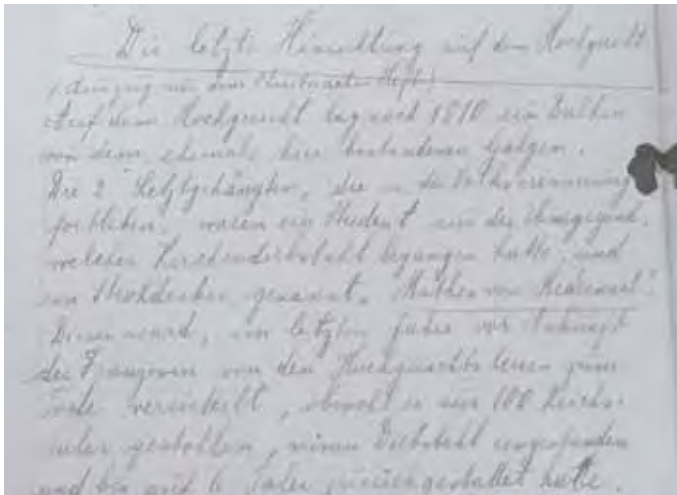 Die letzte Hinrichtung auf dem Hochgericht
(Auszug aus dem
Auf dem Hochgericht lag noch 1810 ein Balken
von dem ehemals hier bestandenen Galgen.
Die 2 Letztgehängten, die in der Volkserinnerung
fortleben, waren ein Student aus der Umgegend,
welcher Kirchendiebstahl begangen hatte, und
ein Strohdecker genannt, "
Dieser ward, im letzten Jahre vor Ankunft
der Franzosen von den Hochgerichtsherren zum
Tode verurteilt, obwohl er nur 100 Reichs-
taler gestohlen, seinen Diebstahl eingestanden
und bis auf 6 Taler zurückgestattet hatte.